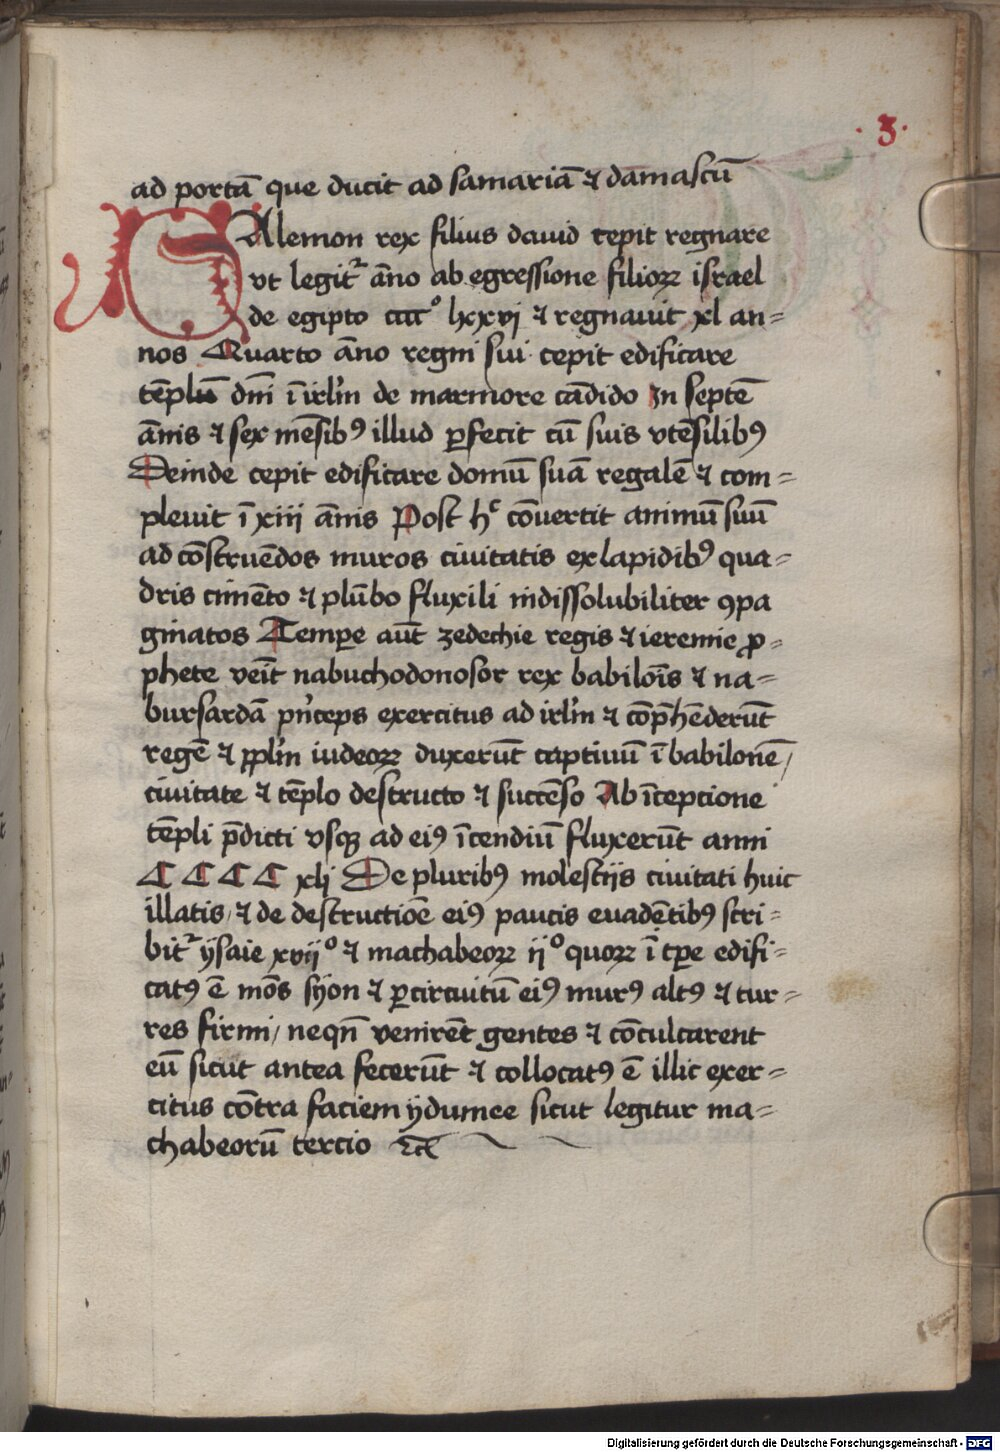 ·3·
ad portā que ducit ad samariā ⁊ damascū
SAlemon rex filius dauid cepit regnare
vt legitᷣ āno ab egressione filioꝝ israel
de egipto cccc° lxxvj ⁊ regnauit xl an=
nos Quarto āno regni sui cepit edificare
tēplū dn̄i ī irl̄m de marmore cādido In septē
ānis ⁊ sex mēsibꝰ illud ꝑfecit cū suis vtēsilibꝰ
Deinde cepit edificare domū suā regalē ⁊ com=
pleuit ī xiii ānis Post hͨ cōuertit animū suū
ad cōstruēdos muros ciuitatis ex lapidibꝰ qua=
dris cimēto ⁊ plūbo fluxili indissolubiliter ꝯpa
ginatos Tempe aūt zedechie regis ⁊ ieremie ꝓ=
phete veīt nabuchodonosor rex babiloīs ⁊ na=
bursardā pn̄ceps exercitus ad irl̄m ⁊ cōp̄hēderūt
regē ⁊ ppl̄m iudeoꝝ duxerūt captiuū ī babilonē/
ciuitate ⁊ tēplo destructo ⁊ succēso Ab īcepcione
tēpli p̄dicti vsqꝫ ad eiꝰ īcendiū fluxerūt anni
C C C C xlj De pluribꝰ molestiis ciuitati huic
illatis/ ⁊ de destructiōe eiꝰ paucis euadētibꝰ scri=
bitᷣ ysaie xvij° ⁊ machabeoꝝ ij° quoꝝ ī tꝑe edifi=
catꝰ ē mōs syon ⁊ ꝑ circuitū eiꝰ murꝰ altꝰ ⁊ tur=
res firmi/ neqn̄ venirēt gentes ⁊ cōculcarent
eū sicut antea fecerūt ⁊ collocatꝰ ē illic exer=
citus cōtra faciem ydumee sicut legitur ma=
chabeorū tercio ⁊cͣ
Digitalisierung gefördert durch die Deutsche Forschungsgemeinschaft - DFG